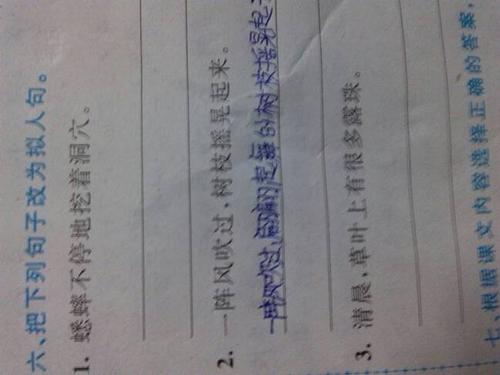 六、把下列句子改为拟人句。
1. 蟋蟀不停地挖着洞穴。
2. 一阵风吹过,树枝摇晃起来。
一阵风吹过,翩翩起舞的树枝摇晃起
3. 清晨,草叶上有很多露珠。
七、根据课文内容选择正确的答案,